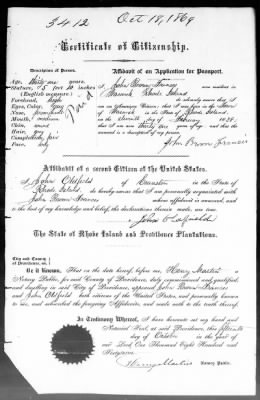 3412 Oct 18, 1869
Certificate of Citizenship.
Description of Person.
Age, thirty one years.
Stature, 5 feet 10 inches
(English measure)
Forehead, high
Eyes, Color,
Nose,
Mouth, medium
Chin, round
Hair,
Complexion, fair
Face, oval
Paid
Affidavit of an Application for Passport.
I John Brown Francis of
Warwick Rhode Island
do solemnly swear that I am
an Citizen; that I was born in the Town
of Warwick in the State of Rhode Island
on the eleventh day of February 1838.
I am thirty one years of age and that the
annexed is a description of my person.
John Brown Francis
Affidavit of a second Citizen of the United States.
I John Oldfield of Cranston in the State of
Rhode Island, do hereby swear that I am personally acquainted with
John Brown Francis whose affidavit is annexed, and
to the best of my knowledge and belief, the declarations therein made, are true.
John Oldfield
The State of Rhode Island and Providence Plantations.
City and County
of Providence, ss.
Be it known, That on the date hereof, before me, Henry Martin a
Notary Public, for said County of Providence, duly commissioned and qualified,
and dwelling in said City of Providence, appeared John Brown Francis
and John Oldfield both citizens of the United States, and personally known
to me, and subscribed the foregoing Affidavits, and made oath to the truth thereof.
In Testimony Whereof, I have hereunto set my hand and
Notarial Seal, at said Providence, this fifteenth
day of October in the year of
our Lord One Thousand Eight Hundred and
Henry Martin Notary Public.